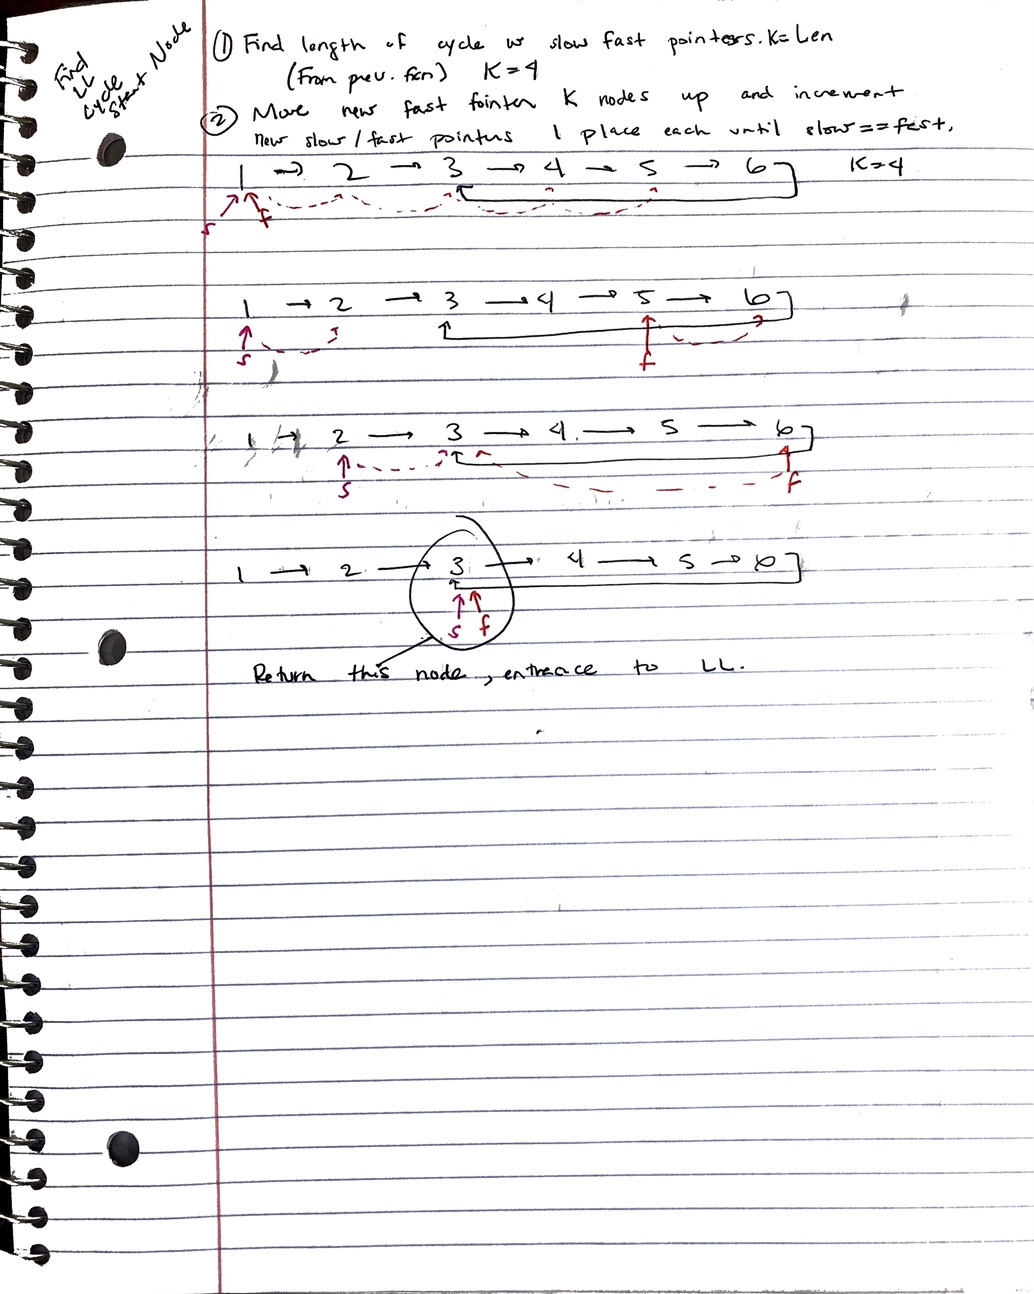 Find
LL
Cycle
Start Node
① Find length of cycle w slow fast pointers. K=Len
(From prev. fcn) K=4
② Move new fast pointer K nodes up and increment
new slow/fast pointers 1 place each until slow==fast.
1 → 2 → 3 → 4 → 5 → 6 K=4
s f
1 → 2 → 3 → 4 → 5 → 6
s f
1 → 2 → 3 → 4 → 5 → 6
s f
1 → 2 → 3 → 4 → 5 → 6
s f
Return this node, entrance to LL.